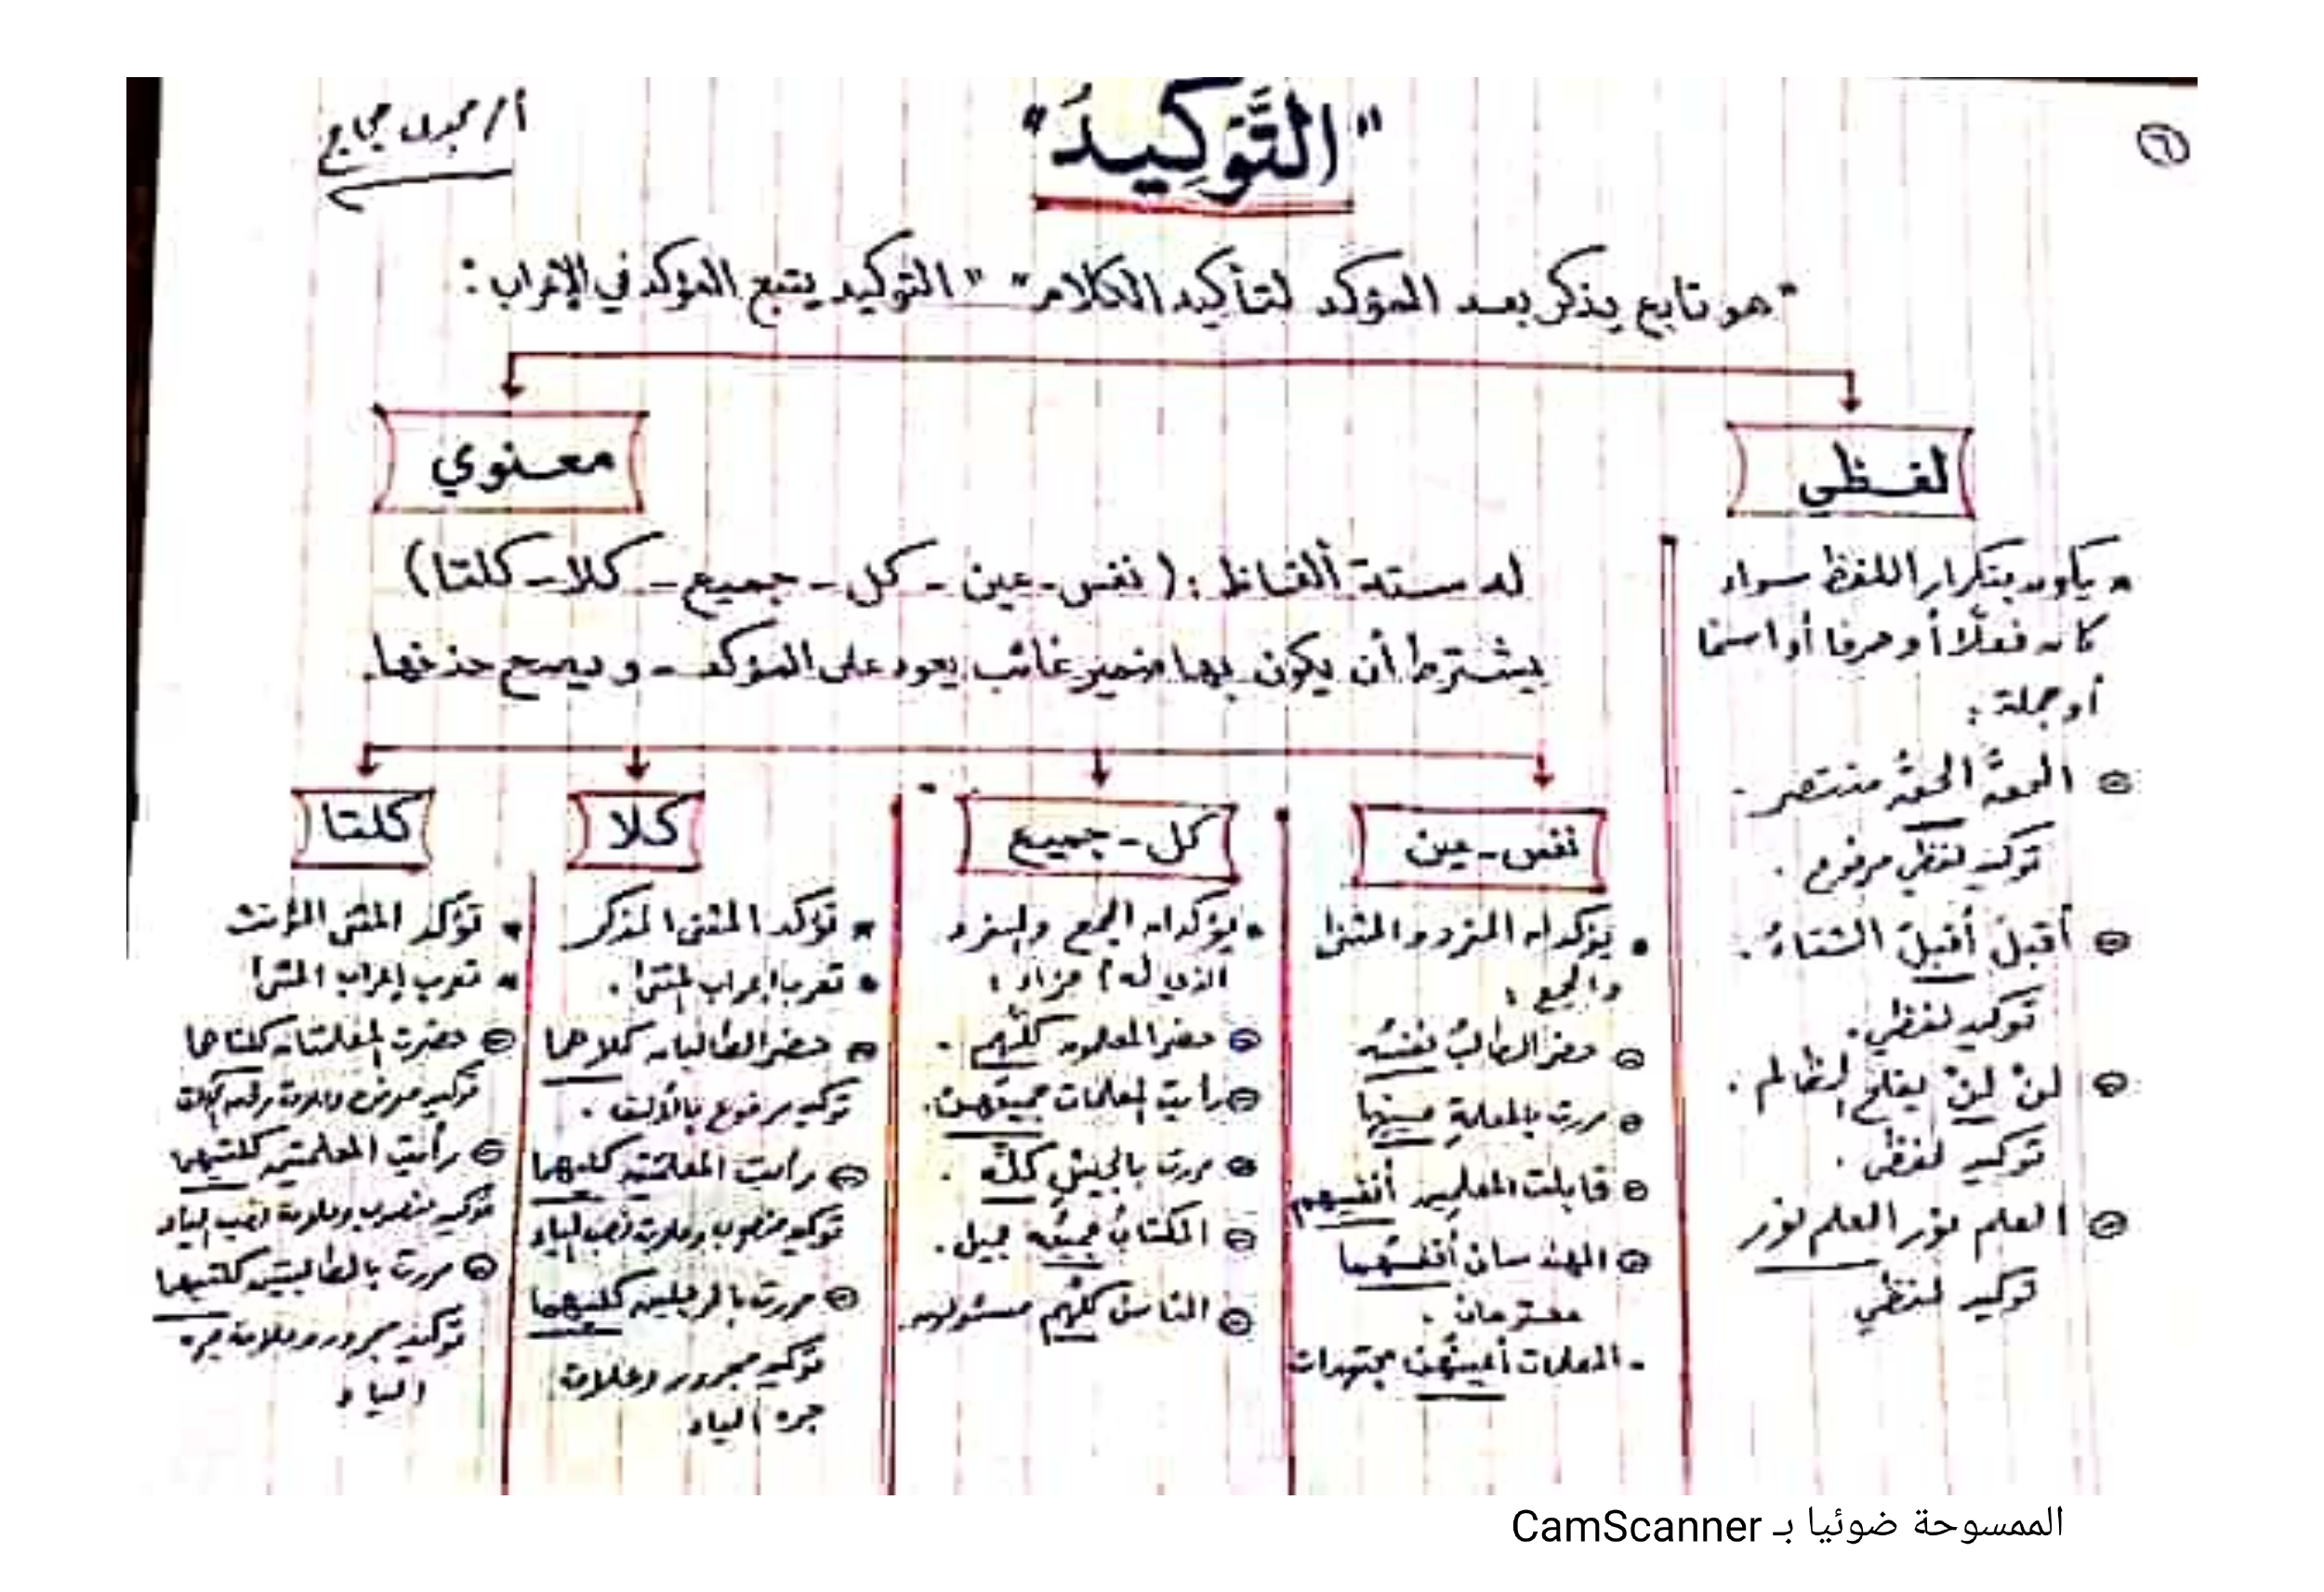 "التَّوكِيدُ"
"هو تابع يذكر بعد المؤكد لتأكيد الكلام" "التوكيد يتبع المؤكد في الإعراب:
لفظي
يكون بتكرار اللفظ سواء
كان فعلًا أو حرفا أو اسمًا
أو جملة:
الحقُّ الحقُّ منتصر.
توكيد لفظي مرفوع.
أقبلَ أقبلَ الشتاءُ.
توكيد لفظي.
لنْ لنْ يفلح الظالم.
توكيد لفظي.
العلم نور العلم نور
توكيد لفظي
معنوي
له ستة ألفاظ: (نفس - عين - كل - جميع - كلا - كلتا)
يشترط أن يكون بها ضمير غائب يعود على المؤكد - ويصح حذفها.
نفس - عين
يؤكدان المفرد والمثنى
والجمع:
حضر الطالبُ نفسُه
مررت بالمعلمةِ عينِها
قابلت المعلمين أنفسهم
المهندسان أنفسُهما
محترمان.
- المعلمات أعينُهن مجتهدات
كل - جميع
يؤكدان الجمع والمفرد
الذي له أفراد:
حضر المعلمون كلُّهم.
رأيت المعلمات جميعَهن.
مررت بالجيشِ كلِّه.
الكتابُ جميعُه جميل.
الناس كلُّهم مسئولون.
كلا
تؤكد المثنى المذكر
تعرب إعراب المثنى.
حضر الطالبان كلاهما
توكيد مرفوع بالألف.
رأيت المعلمَين كليهما
توكيد منصوب وعلامة نصبه الياء
مررت بالرجلين كليهما
توكيد مجرور وعلامة
جره الياء
كلتا
تؤكد المثنى المؤنث
تعرب إعراب المثنى
حضرت المعلمتان كلتاهما
توكيد مرفوع وعلامة رفعه الألف
رأيت المعلمتين كلتيهما
توكيد منصوب وعلامة نصبه الياء
مررت بالطالبتين كلتيهما
توكيد مجرور وعلامة جره
الياء
الممسوحة ضوئيا بـ CamScanner